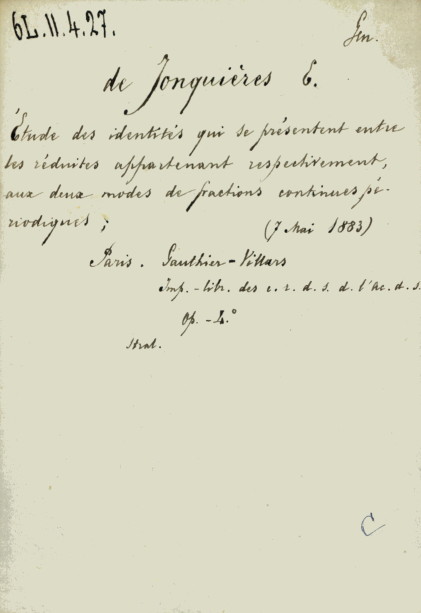 6L.11.4.27.
Gen.
de Jonquières E.
Étude des identités qui se présentent entre
les réduites appartenant respectivement,
aux deux modes de fractions continues pé-
riodiques;
(7 Mai 1883)
Paris. Gauthier-Villars
Imp.-libr. des c. r. d. s. d. l'Ac. d. s.
Op. - 4.°
Strat.
C